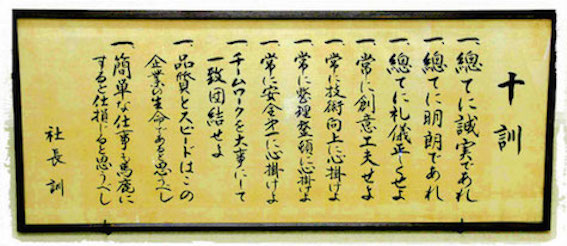 十訓
一、總てに誠実であれ
一、總てに明朗であれ
一、總てに礼儀正しくせよ
一、常に創意工夫せよ
一、常に技術向上に心掛けよ
一、常に整理整頓に心掛けよ
一、常に安全第一に心掛けよ
一、チームワークを大事にして
一致団結せよ
一、品質とスピードはこの
企業の生命であると思うべし
一、簡単な仕事も馬鹿に
すると仕損じると思うべし
社長訓